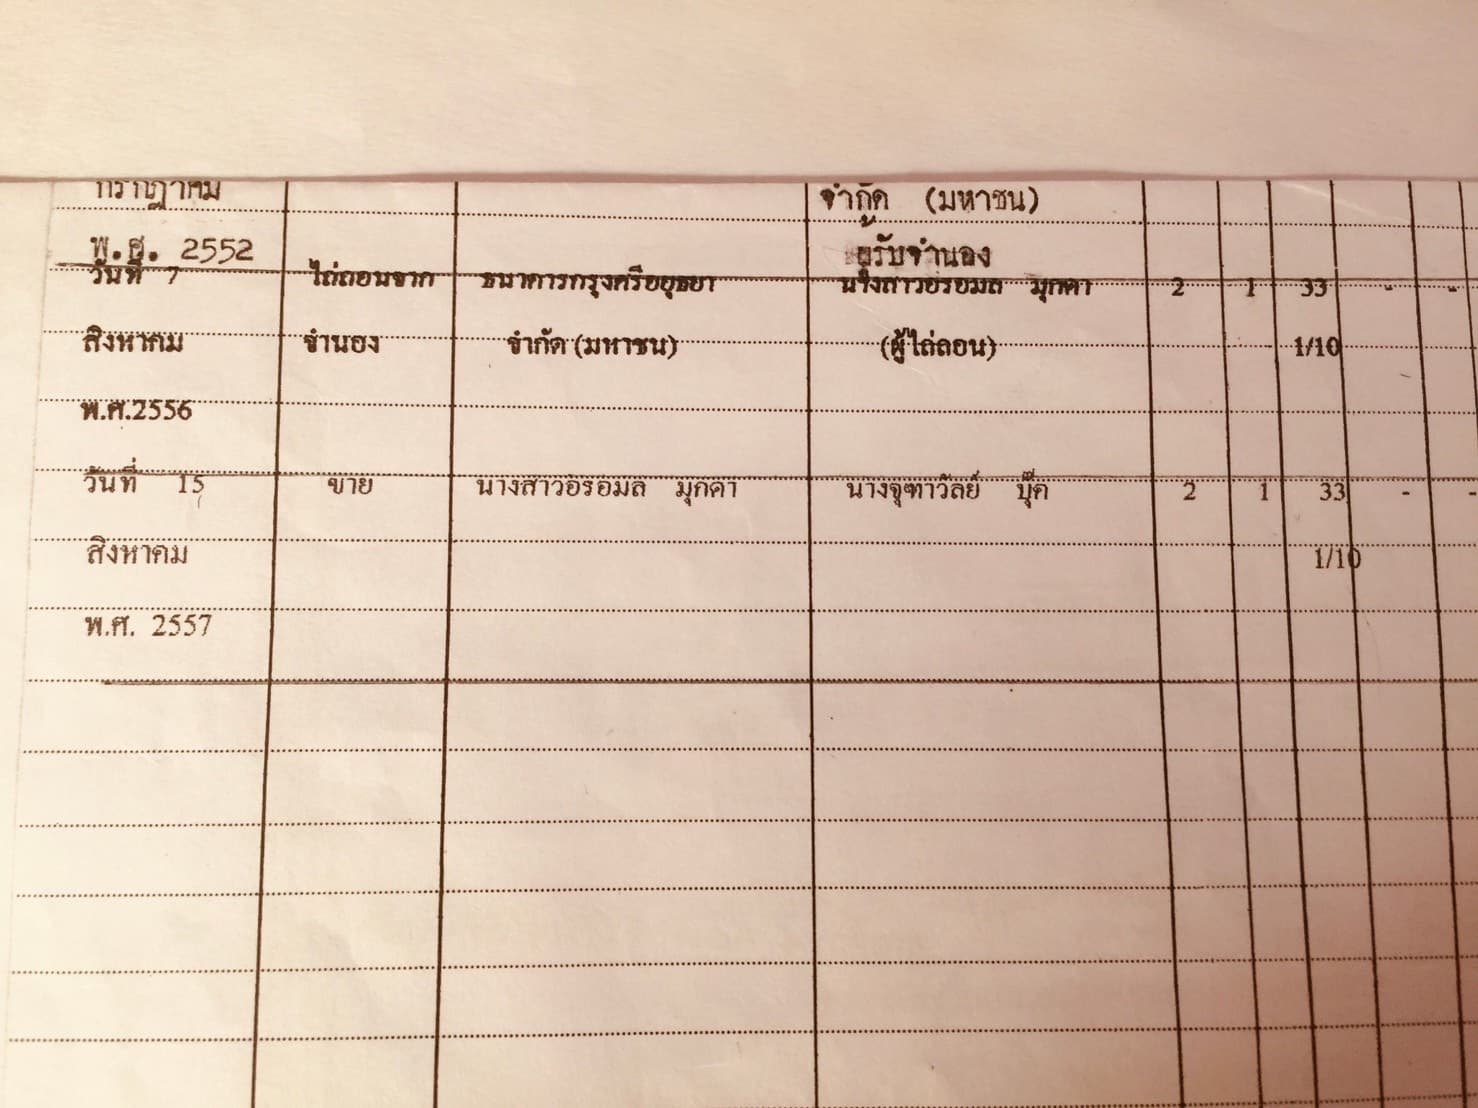 กรกฎาคม จำกัด (มหาชน)
พ.ศ. 2552 ผู้รับจำนอง
วันที่ 7 ไถ่ถอนจาก ธนาคารกรุงศรีอยุธยา นางสาวอรอมล มุกดา 2 1 33 - -
สิงหาคม จำนอง จำกัด (มหาชน) (ผู้ไถ่ถอน) 1/10
พ.ศ.2556
วันที่ 15 ขาย นางสาวอรอมล มุกดา นางจุฑาวัลย์ บุ๊ค 2 1 33 - -
สิงหาคม 1/10
พ.ศ. 2557